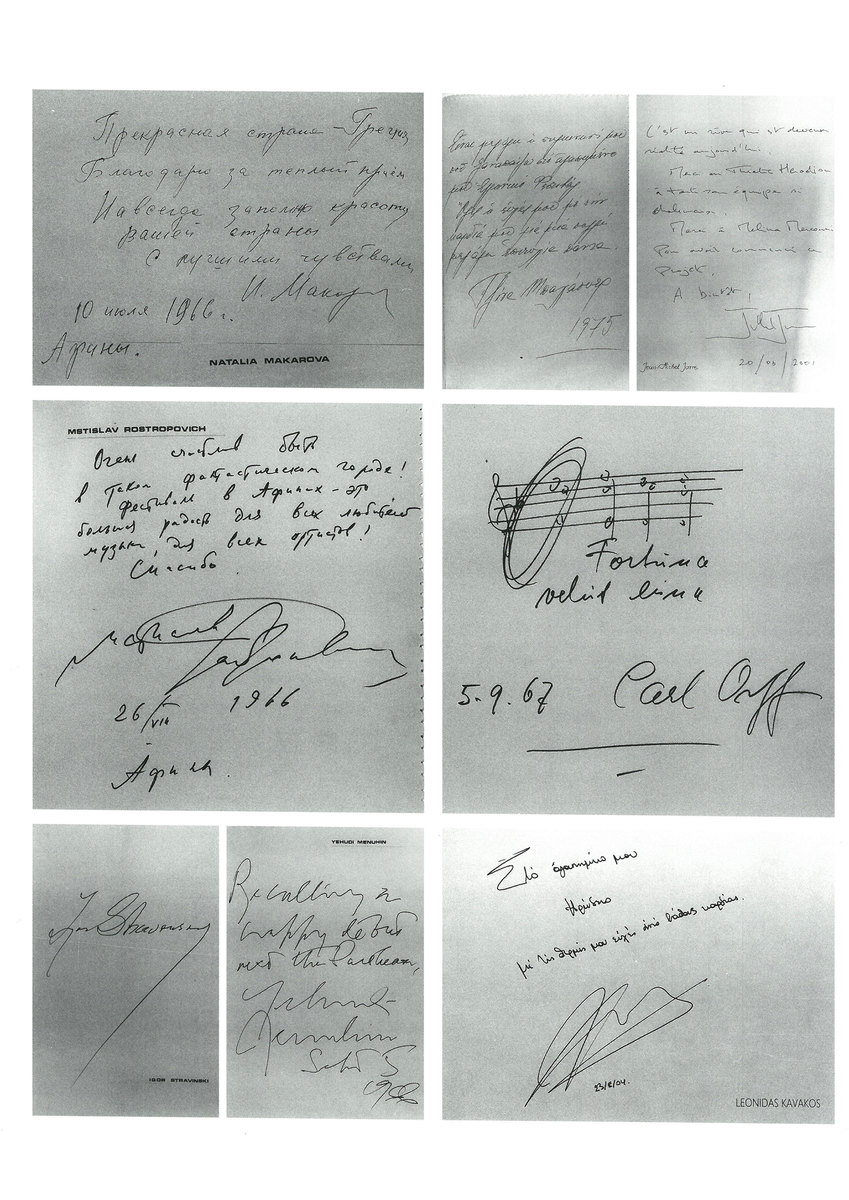 Прекрасная страна – Греция
Благодарю за теплый приём
Навсегда запомню красоту
вашей страны
С лучшими чувствами
Н. Макарова
10 июля 1966 г.
Афины.
NATALIA MAKAROVA
Τζίνα Μπαχάουερ
1975
C'est un rêve qui est devenu
réalité aujourd'hui.
Merci au Théâtre Herodion
à toute son équipe si
chaleureuse.
Merci à Melina Mercouri
Pour avoir commencé ce
projet.
A bientôt,
Jean Michel Jarre
2001
MSTISLAV ROSTROPOVICH
Очень счастлив быть
в таком фантастическом городе!
Фестиваль в Афинах – это
большая радость для всех любителей
музыки, для всех артистов!
Спасибо.
26/VII 1966
Афины.
Fortuna
velut luna
5.9.67 Carl Orff
Igor Stravinsky
IGOR STRAVINSKI
YEHUDI MENUHIN
Recalling a
happy debut
next the Parthenon,
Yehudi
Menuhin
Sept 5
Στό άγαπημένο μου
Ηρώδειο
μέ τίς θερμές μου εὐχές ἀπό βάθους καρδίας.
23/6/04.
LEONIDAS KAVAKOS